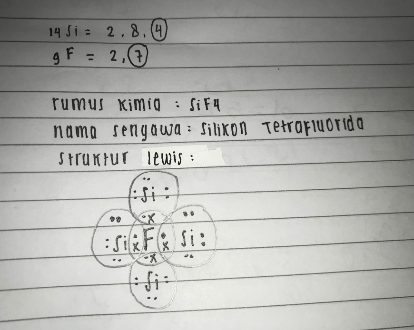 14 Si = 2, 8, 4
9 F = 2, 7
rumus kimia : SiF4
nama sengawa : Silikon Tetrafluorida
struktur lewis :
:Si:
:Si x F x Si:
:Si: